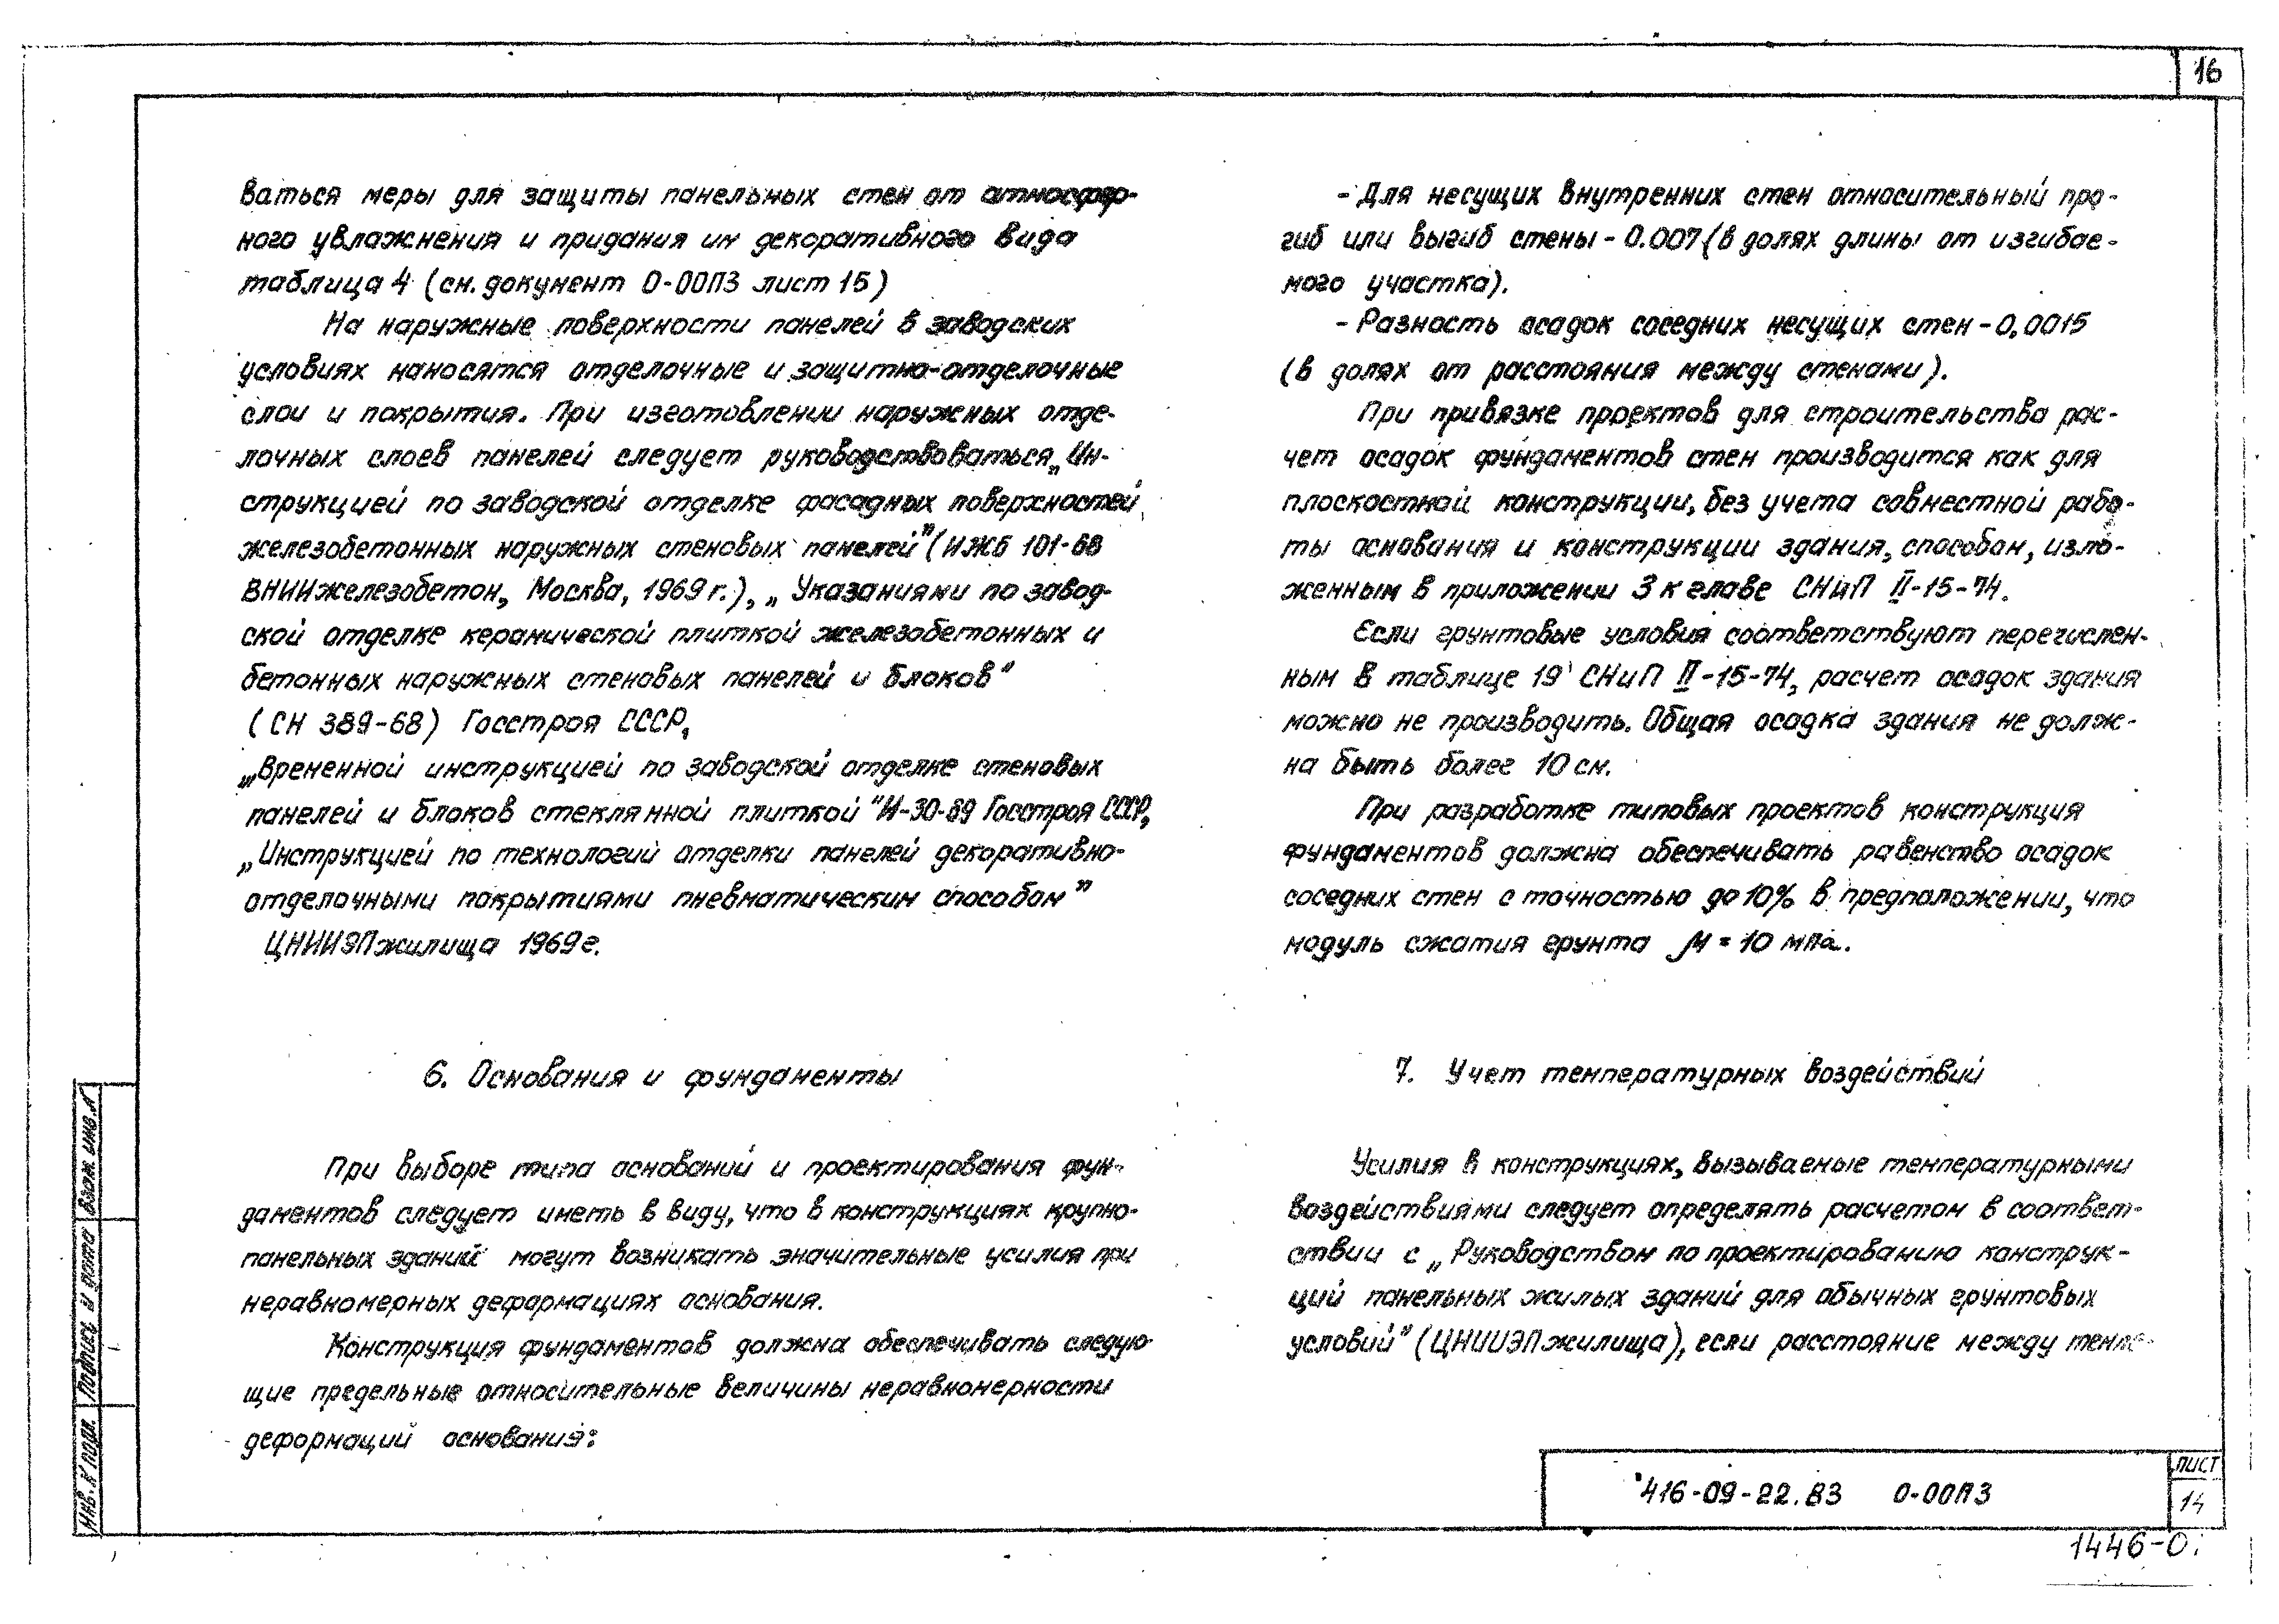 16
ваться меры для защиты панельных стен от атмосфер-
ного увлажнения и придания им декоративного вида
таблица 4 (см. документ 0-00ПЗ лист 15)
На наружные поверхности панелей в заводских
условиях наносятся отделочные и защитно-отделочные
слои и покрытия. При изготовлении наружных отде-
лочных слоев панелей следует руководствоваться „Ин-
струкцией по заводской отделке фасадных поверхностей
железобетонных наружных стеновых панелей" (ИЖБ 101-68
ВНИИжелезобетон, Москва, 1969 г.), „Указаниями по завод-
ской отделке керамической плиткой железобетонных и
бетонных наружных стеновых панелей и блоков"
(СН 389-68) Госстроя СССР,
„Временной инструкцией по заводской отделке стеновых
панелей и блоков стеклянной плиткой" И-30-89 Госстроя СССР,
„Инструкцией по технологий отделки панелей декоративно-
отделочными покрытиями пневматическим способом"
ЦНИИЭПжилища 1969 г.
6. Основания и фундаменты
При выборе типа оснований и проектирования фун-
даментов следует иметь в виду, что в конструкциях крупно-
панельных зданий могут возникать значительные усилия при
неравномерных деформациях основания.
Конструкция фундаментов должна обеспечивать следую-
щие предельные относительные величины неравномерности
деформаций основания:
- Для несущих внутренних стен относительный про-
гиб или выгиб стены - 0.007 (в долях длины от изгибае-
мого участка).
- Разность осадок соседних несущих стен - 0,0015
(в долях от расстояния между стенами).
При привязке проектов для строительства рас-
чет осадок фундаментов стен производится как для
плоскостной конструкции, без учета совместной рабо-
ты основания и конструкции здания, способом, изло-
женным в приложении 3 к главе СНиП II-15-74.
Если грунтовые условия соответствуют перечислен-
ным в таблице 19 СНиП II-15-74, расчет осадок здания
можно не производить. Общая осадка здания не долж-
на быть более 10 см.
При разработке типовых проектов конструкция
фундаментов должна обеспечивать равенство осадок
соседних стен с точностью до 10% в предположении, что
модуль сжатия грунта М = 10 мпа.
7. Учет температурных воздействий
Усилия в конструкциях, вызываемые температурными
воздействиями следует определять расчетом в соответ-
ствии с „Руководством по проектированию конструк-
ций панельных жилых зданий для обычных грунтовых
условий" (ЦНИИЭПжилища), если расстояние между темпе-
Взам. инв. №
Подпись и дата
Инв. № подл.
416-09-22.83 0-00ПЗ
лист
14
1446-0